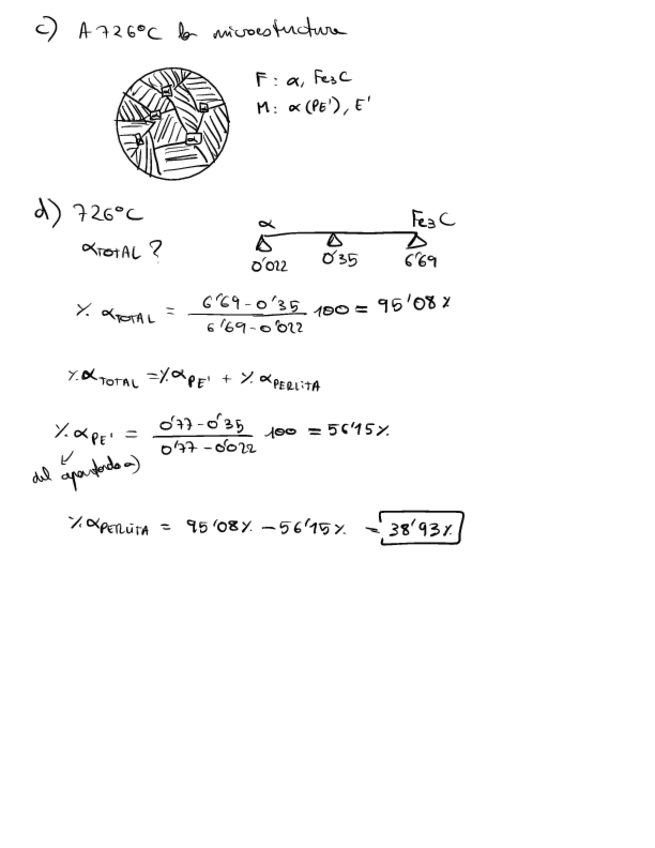 c) A 726°C la microestructura
F: α, Fe3C
M: α(PE'), E'
α
α
α
α
α
d) 726°C
α Fe3C
αTOTAL ?
0'022 0'35 6'69
% αTOTAL = (6'69 - 0'35) / (6'69 - 0'022) 100 = 95'08 %
% αTOTAL = % αPE' + % αPERLITA
% αPE' = (0'77 - 0'35) / (0'77 - 0'022) 100 = 56'15 %
del apartado a)
% αPERLITA = 95'08 % - 56'15 % = 38'93 %